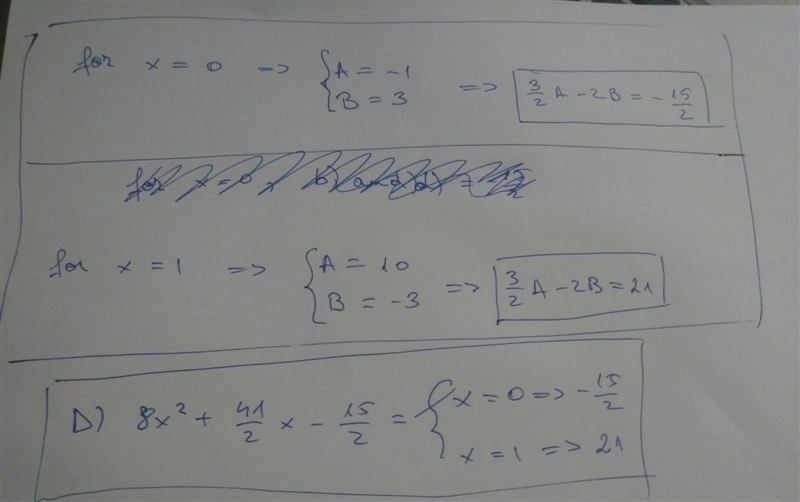 for x = 0 => { A = -1
B = 3 => 3/2 A - 2B = - 15/2
for x = 1 => { A = 10
B = -3 => 3/2 A - 2B = 21
D) 8x² + 41/2 x - 15/2 = { x = 0 => - 15/2
x = 1 => 21